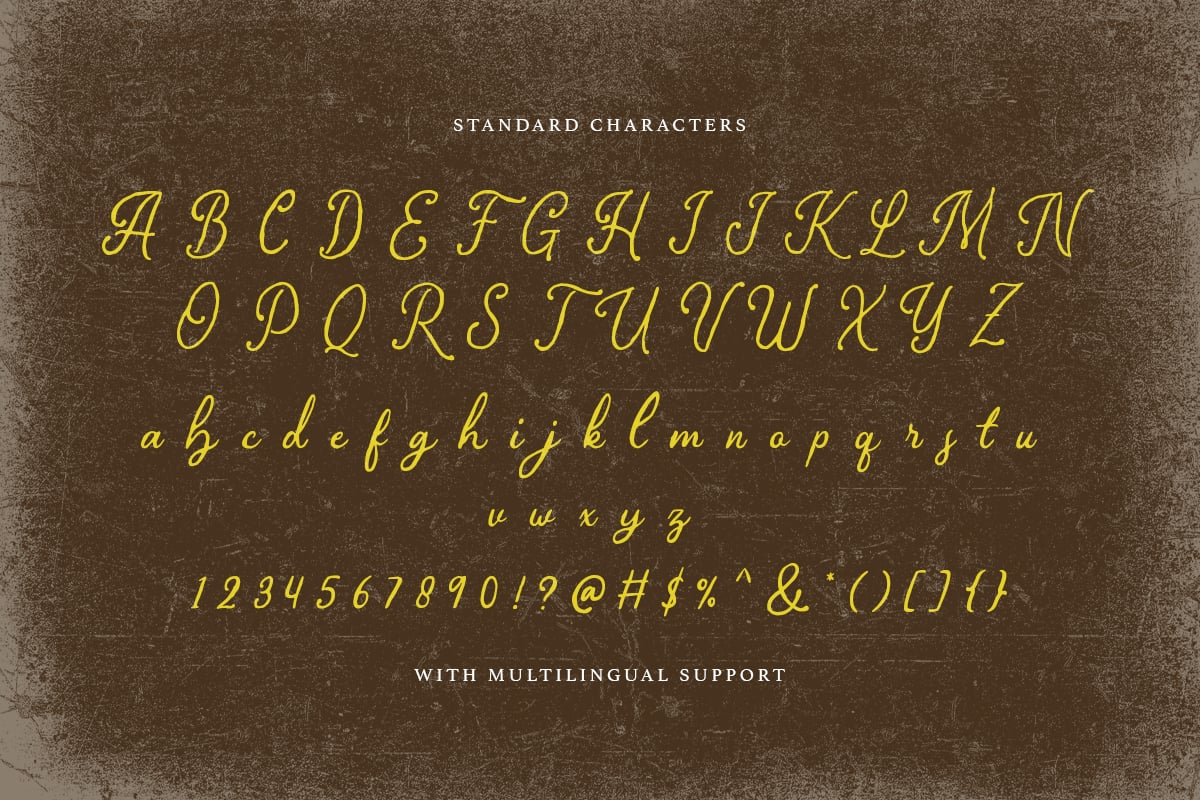 STANDARD CHARACTERS
A B C D E F G H I J K L M N
O P Q R S T U V W X Y Z
a b c d e f g h i j k l m n o p q r s t u
v w x y z
1 2 3 4 5 6 7 8 9 0 ! ? @ # $ % ^ & * ( ) [ ] { }
WITH MULTILINGUAL SUPPORT